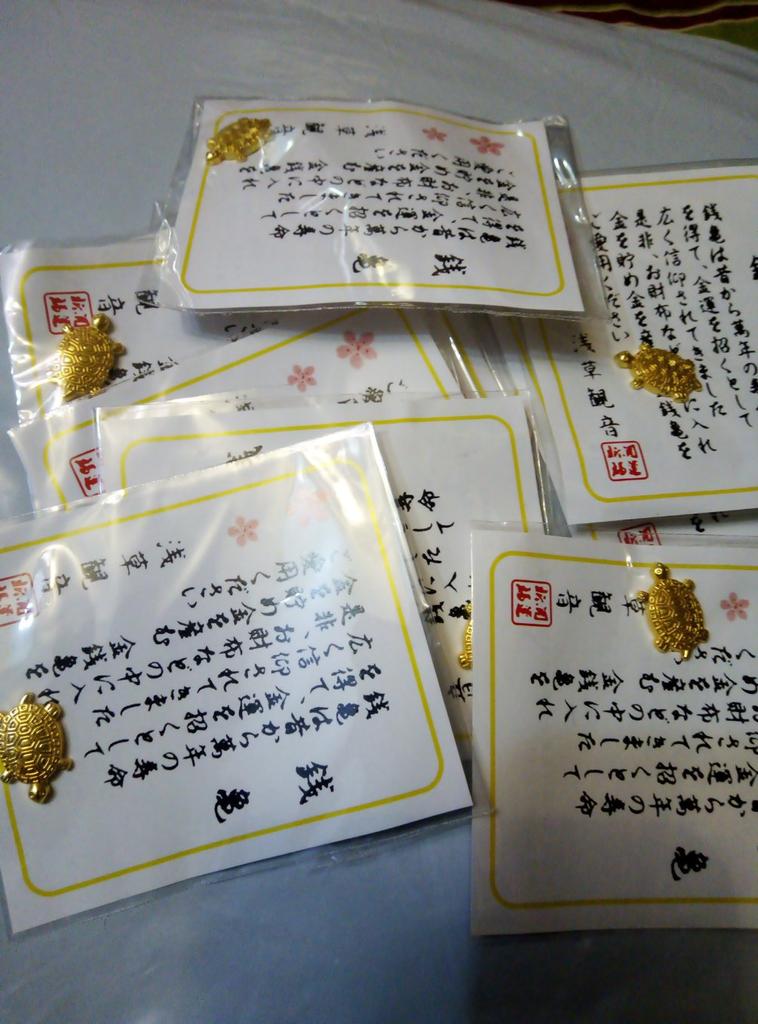 銭亀
銭亀は昔から萬年の寿命
を得て、金運を招くとして
広く信仰されてきました
是非、お財布などの中に入れ
金を貯め金を産む金銭亀を
ご愛用ください
浅草観音
銭亀は昔から萬年の
を得て、金運を招くとして
広く信仰されてきました
是非、お財布な に入れ
金を貯め金を産 銭亀を
ご愛用ください
浅草観音
開運招福
観音
開運招福
銭亀
銭亀は昔から萬年の寿命
を得て、金運を招くとして
広く信仰されてきました
是非、お財布などの中に入れ
金を貯め金を産む金銭亀を
ご愛用ください
浅草観音
亀
昔から萬年の寿命
金運を招くとして
仰されてきました
財布などの中に入れ
め金を産む金銭亀を
ください
草観音
開運招福